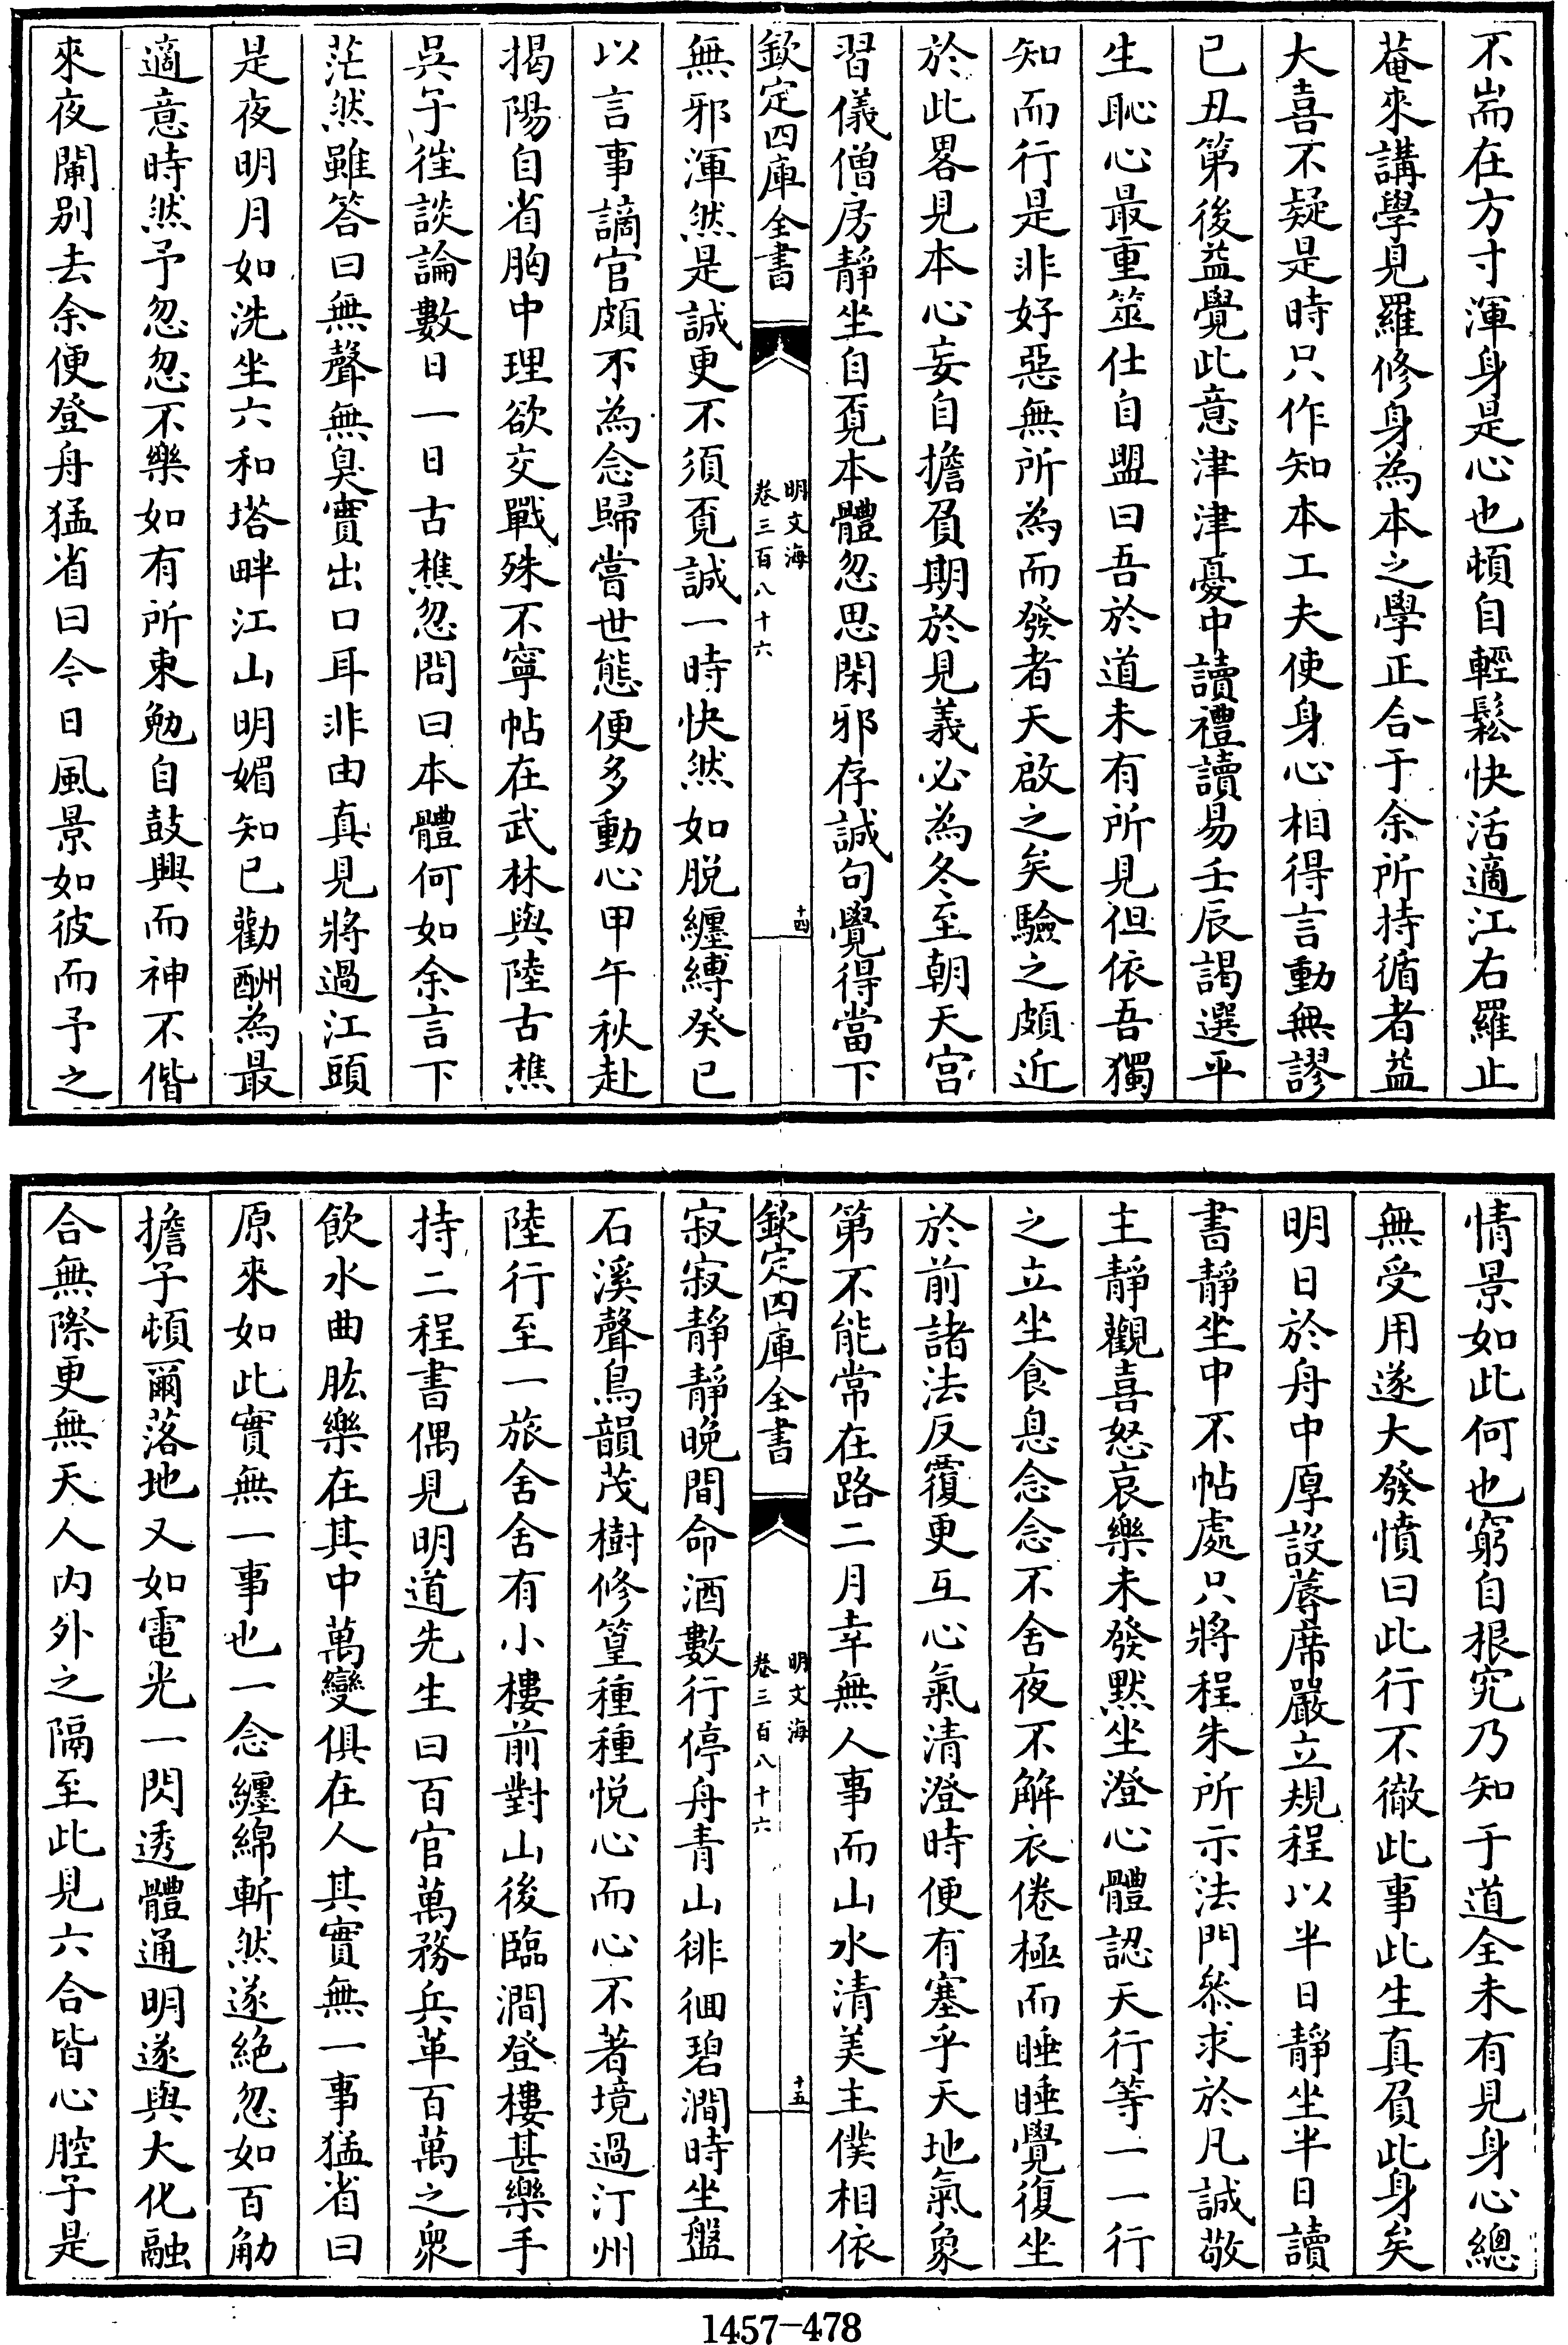 不耑在方寸渾身是心也頓自輕鬆快活適江右羅止
菴來講學見羅修身為本之學正合于余所持循者益
大喜不疑是時只作知本工夫使身心相得言動無謬
已丑第後益覺此意津津憂中讀禮讀易壬辰謁選平
生恥心最重筮仕自盟曰吾於道未有所見但依吾獨
知而行是非好惡無所為而發者天啟之矣驗之頗近
於此畧見本心妄自擔負期於見義必為冬至朝天宮
習儀僧房靜坐自覓本體忽思閑邪存誠句覺得當下
欽定四庫全書
明文海
卷三百八十六
十四
無邪渾然是誠更不須覓誠一時快然如脱纏縛癸已
以言事謫官頗不為念歸嘗世態便多動心甲午秋赴
揭陽自省胸中理欲交戰殊不寧帖在武林與陸古樵
吳子往談論數日一日古樵忽問曰本體何如余言下
茫然雖答曰無聲無臭實出口耳非由真見將過江頭
是夜明月如洗坐六和塔畔江山明媚知已勸酬為最
適意時然予忽忽不樂如有所束勉自鼓興而神不偕
來夜闌别去余便登舟猛省曰今日風景如彼而予之
情景如此何也窮自根究乃知于道全未有見身心總
無受用遂大發憤曰此行不徹此事此生真負此身矣
明日於舟中厚設蓐席嚴立規程以半日靜坐半日讀
書靜坐中不帖處只將程朱所示法門叅求於凡誠敬
主靜觀喜怒哀樂未發黙坐澄心體認天行等一一行
之立坐食息念念不舍夜不解衣倦極而睡睡覺復坐
於前諸法反覆更互心氣清澄時便有塞乎天地氣象
第不能常在路二月幸無人事而山水清美主僕相依
欽定四庫全書
明文海
卷三百八十六
十五
寂寂靜靜晚間命酒數行停舟青山徘徊碧澗時坐盤
石溪聲鳥韻茂樹修篁種種悦心而心不著境過汀州
陸行至一旅舍舍有小樓前對山後臨澗登樓甚樂手
持二程書偶見明道先生曰百官萬務兵革百萬之衆
飲水曲肱樂在其中萬變俱在人其實無一事猛省曰
原來如此實無一事也一念纏綿斬然遂絶忽如百觔
擔子頓爾落地又如電光一閃透體通明遂與大化融
合無際更無天人内外之隔至此見六合皆心腔子是
1457-478